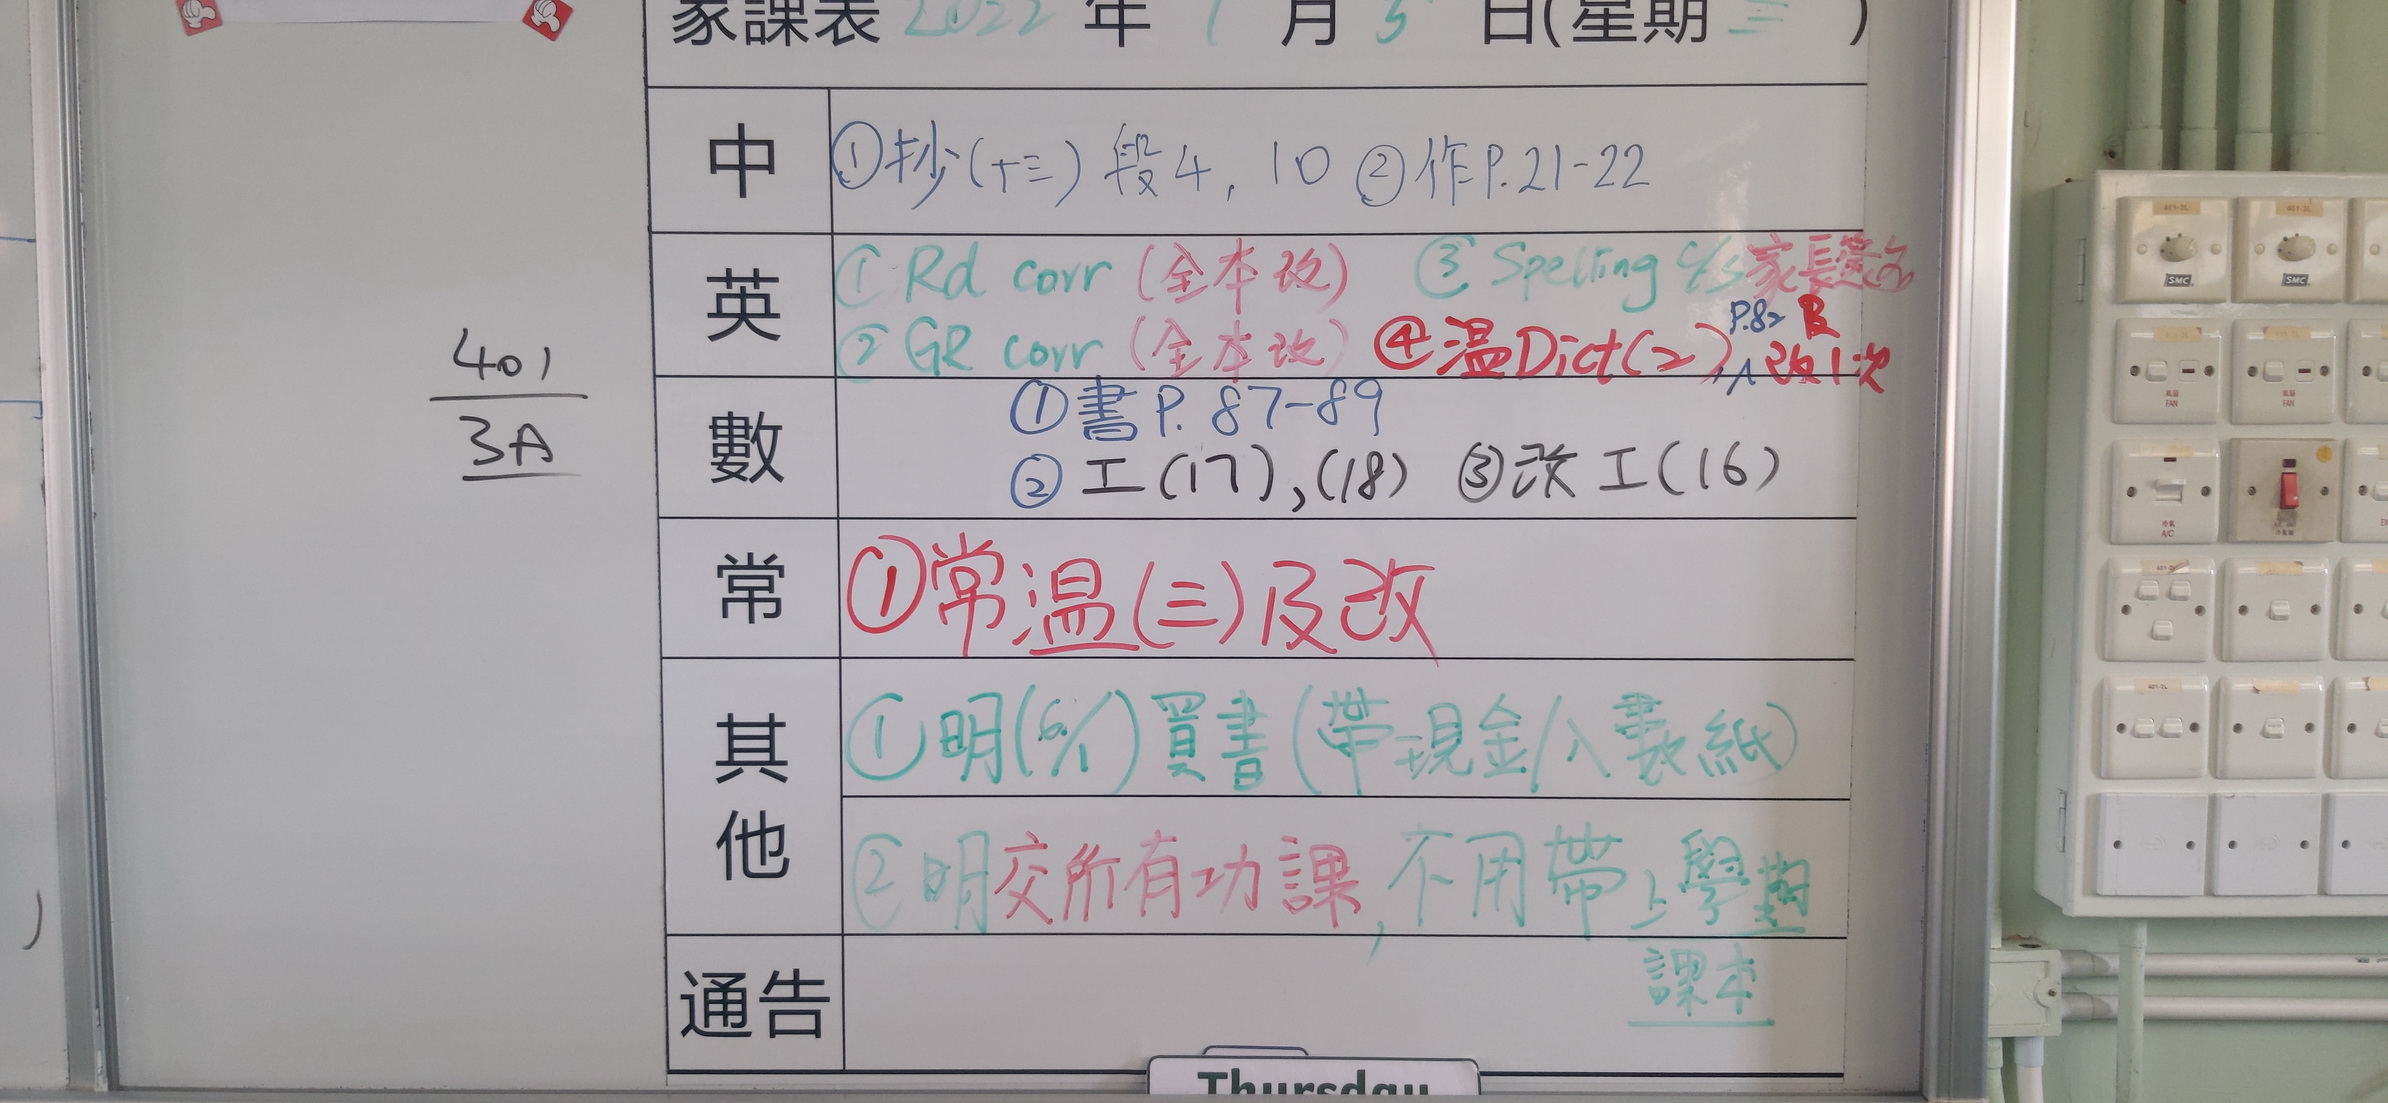 家課表 2022 年 1 月 5 日(星期 三 )
中
①抄(十三)段4, 10 ②作P.21-22
英
①Rd corr (全本改) ③Spelling c/s家長簽名
②GR corr (全本改) ④溫Dict(2), P.82 及改1次
數
①書P. 87-89
②工(17),(18) ③改工(16)
常
①常溫(三)及改
其他
①明(6/1)買書(帶現金/入數紙)
②明交所有功課,不用帶上學期
課本
通告
401
3A
Thursday
SMC
SMC
FAN
FAN
A/C